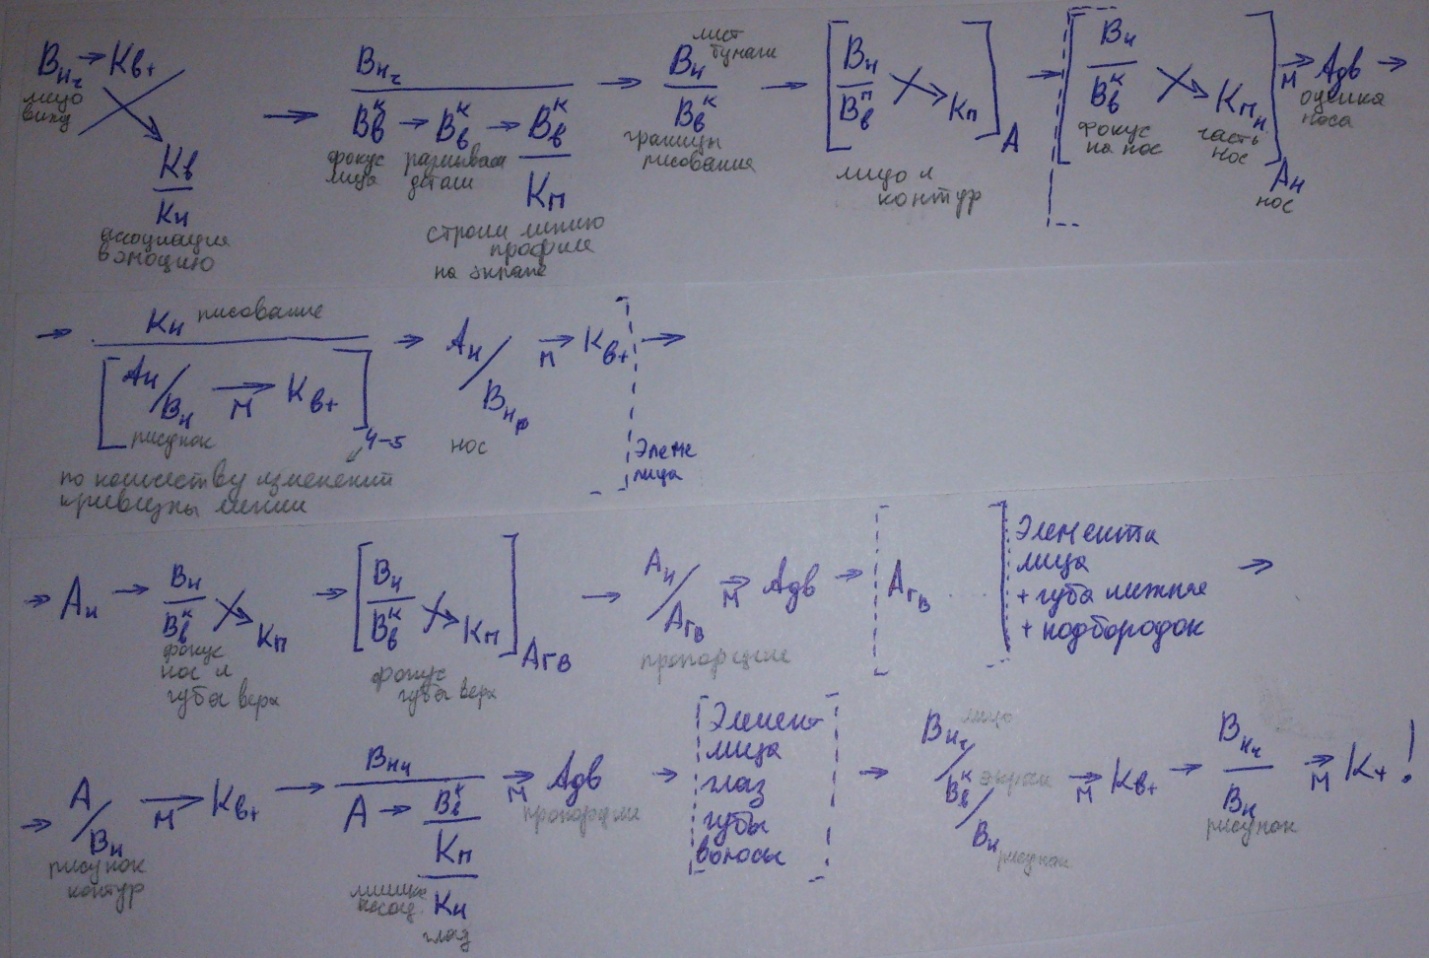 Вн ч → Кв+
лицо
вижу
Кв
Кн
ассоциация
в эмоцию
→ Вн ч
Вв^к → Вв^к → Вв^к
Кп
фокус
лица
размываем
детали
строим линию
профиля
на экране
→ Вн лист
бумаги
Вв^к
границы
рисования
→ [Вн
Вв^п → Кп] А
лицо и
контур
→ [Вн
Вв^к → Кп н] Ан
фокус
на нос
часть
нос
нос
→ м Адв →
оценка
носа
→ Кн рисование
[Ан / Вн → м Кв+] 4-5
рисунок
по количеству изменений
кривизны линии
→ Ан / Вн р → м Кв+ →
нос
Элеме
лица
→ Ан → Вн
Вв^к → Кп
фокус
нос и
губы верх
→ [Вн
Вв^к → Кп] Агв
фокус
губы верх
→ Ан / Агв → м Адв → [Агв]
пропорции
Элемента
лица
+ губа нижняя
+ подбородок
→
→ А / Вн → м Кв+
рисунок
контур
→ Внч
А → Вв^к
Кп
Кн
глаз
→ м Адв
пропорции
→ [Элемент
лица
глаз
губы
волосы]
→ Вн ч лицо
/ Вв^к экран
/ Вн рисунок
→ м Кв+ → Вн ч
Вн
рисунок
→ м К+ !